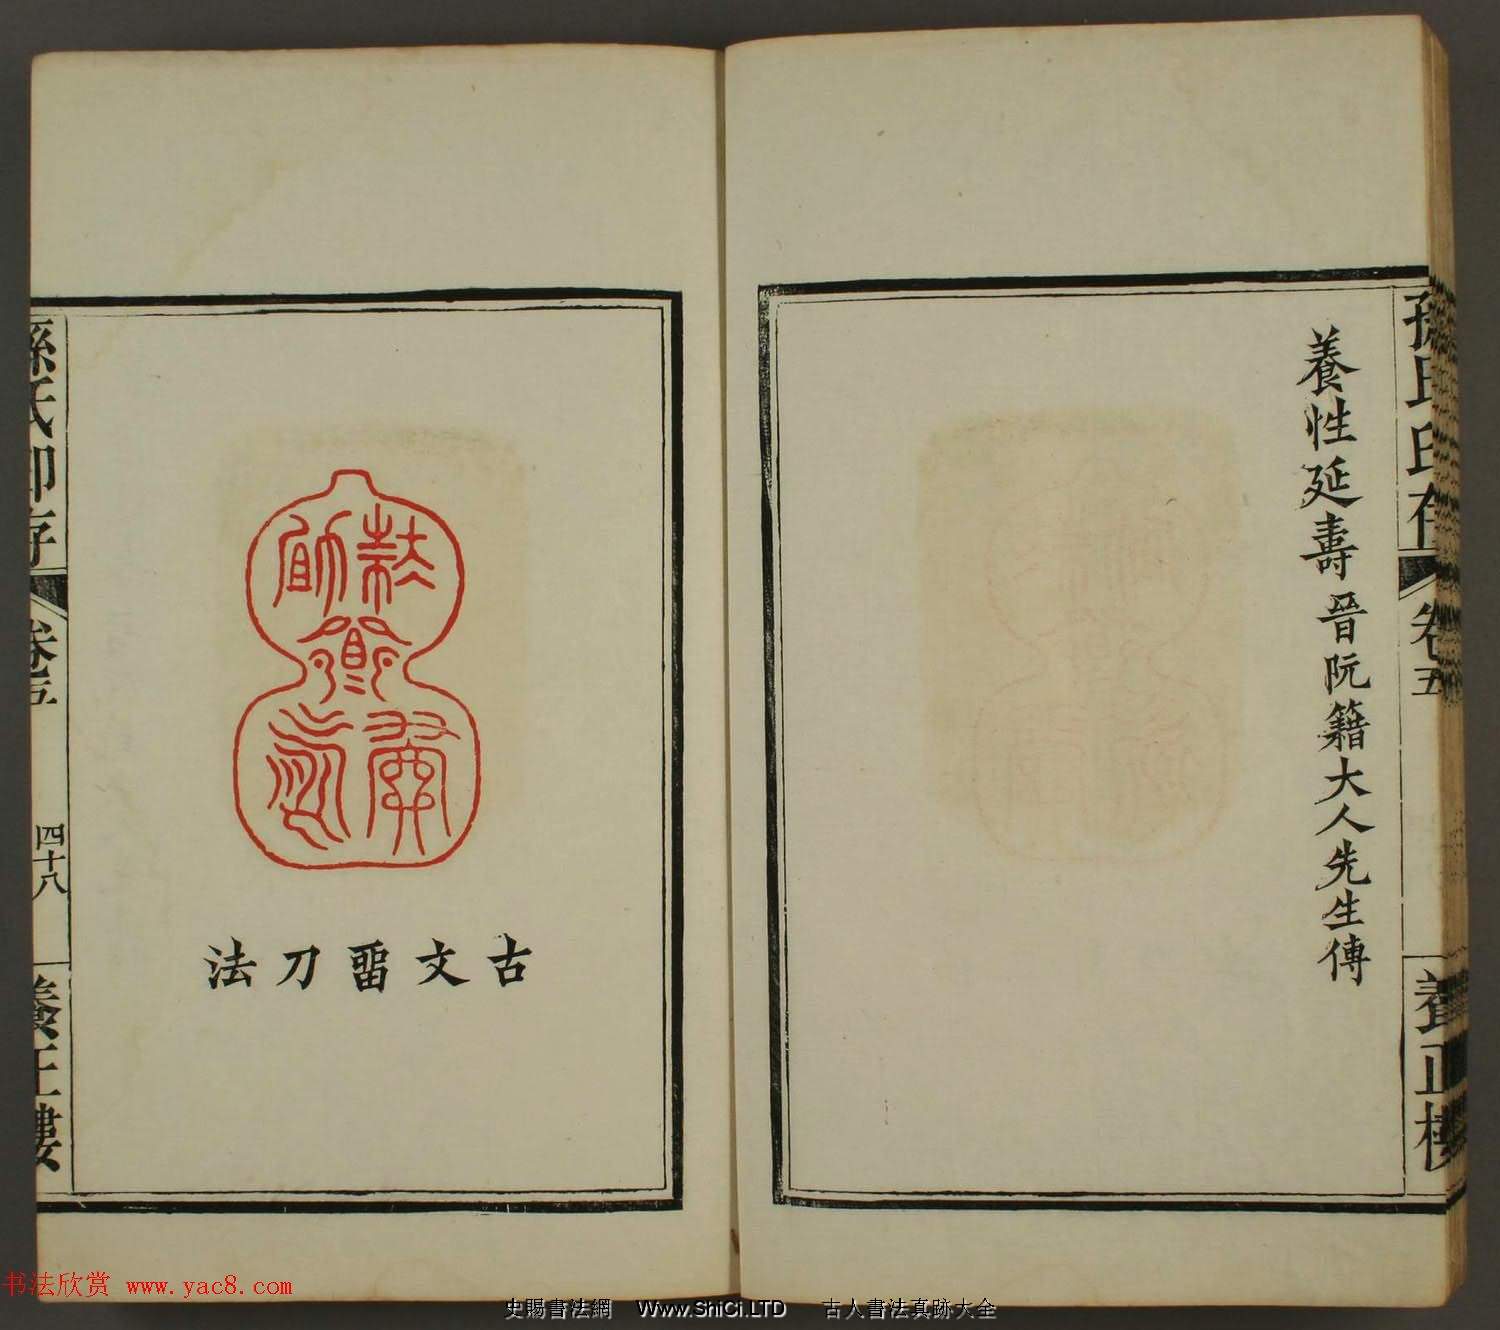 孫氏印存
卷五
養正樓
養性延壽晉阮籍大人先生傳
古文畱刀法
孫氏印存
卷五
四十八
養正樓
书法欣赏 www.yac8.com
史賜書法網 Www.ShiCi.LTD 古人書法真跡大全